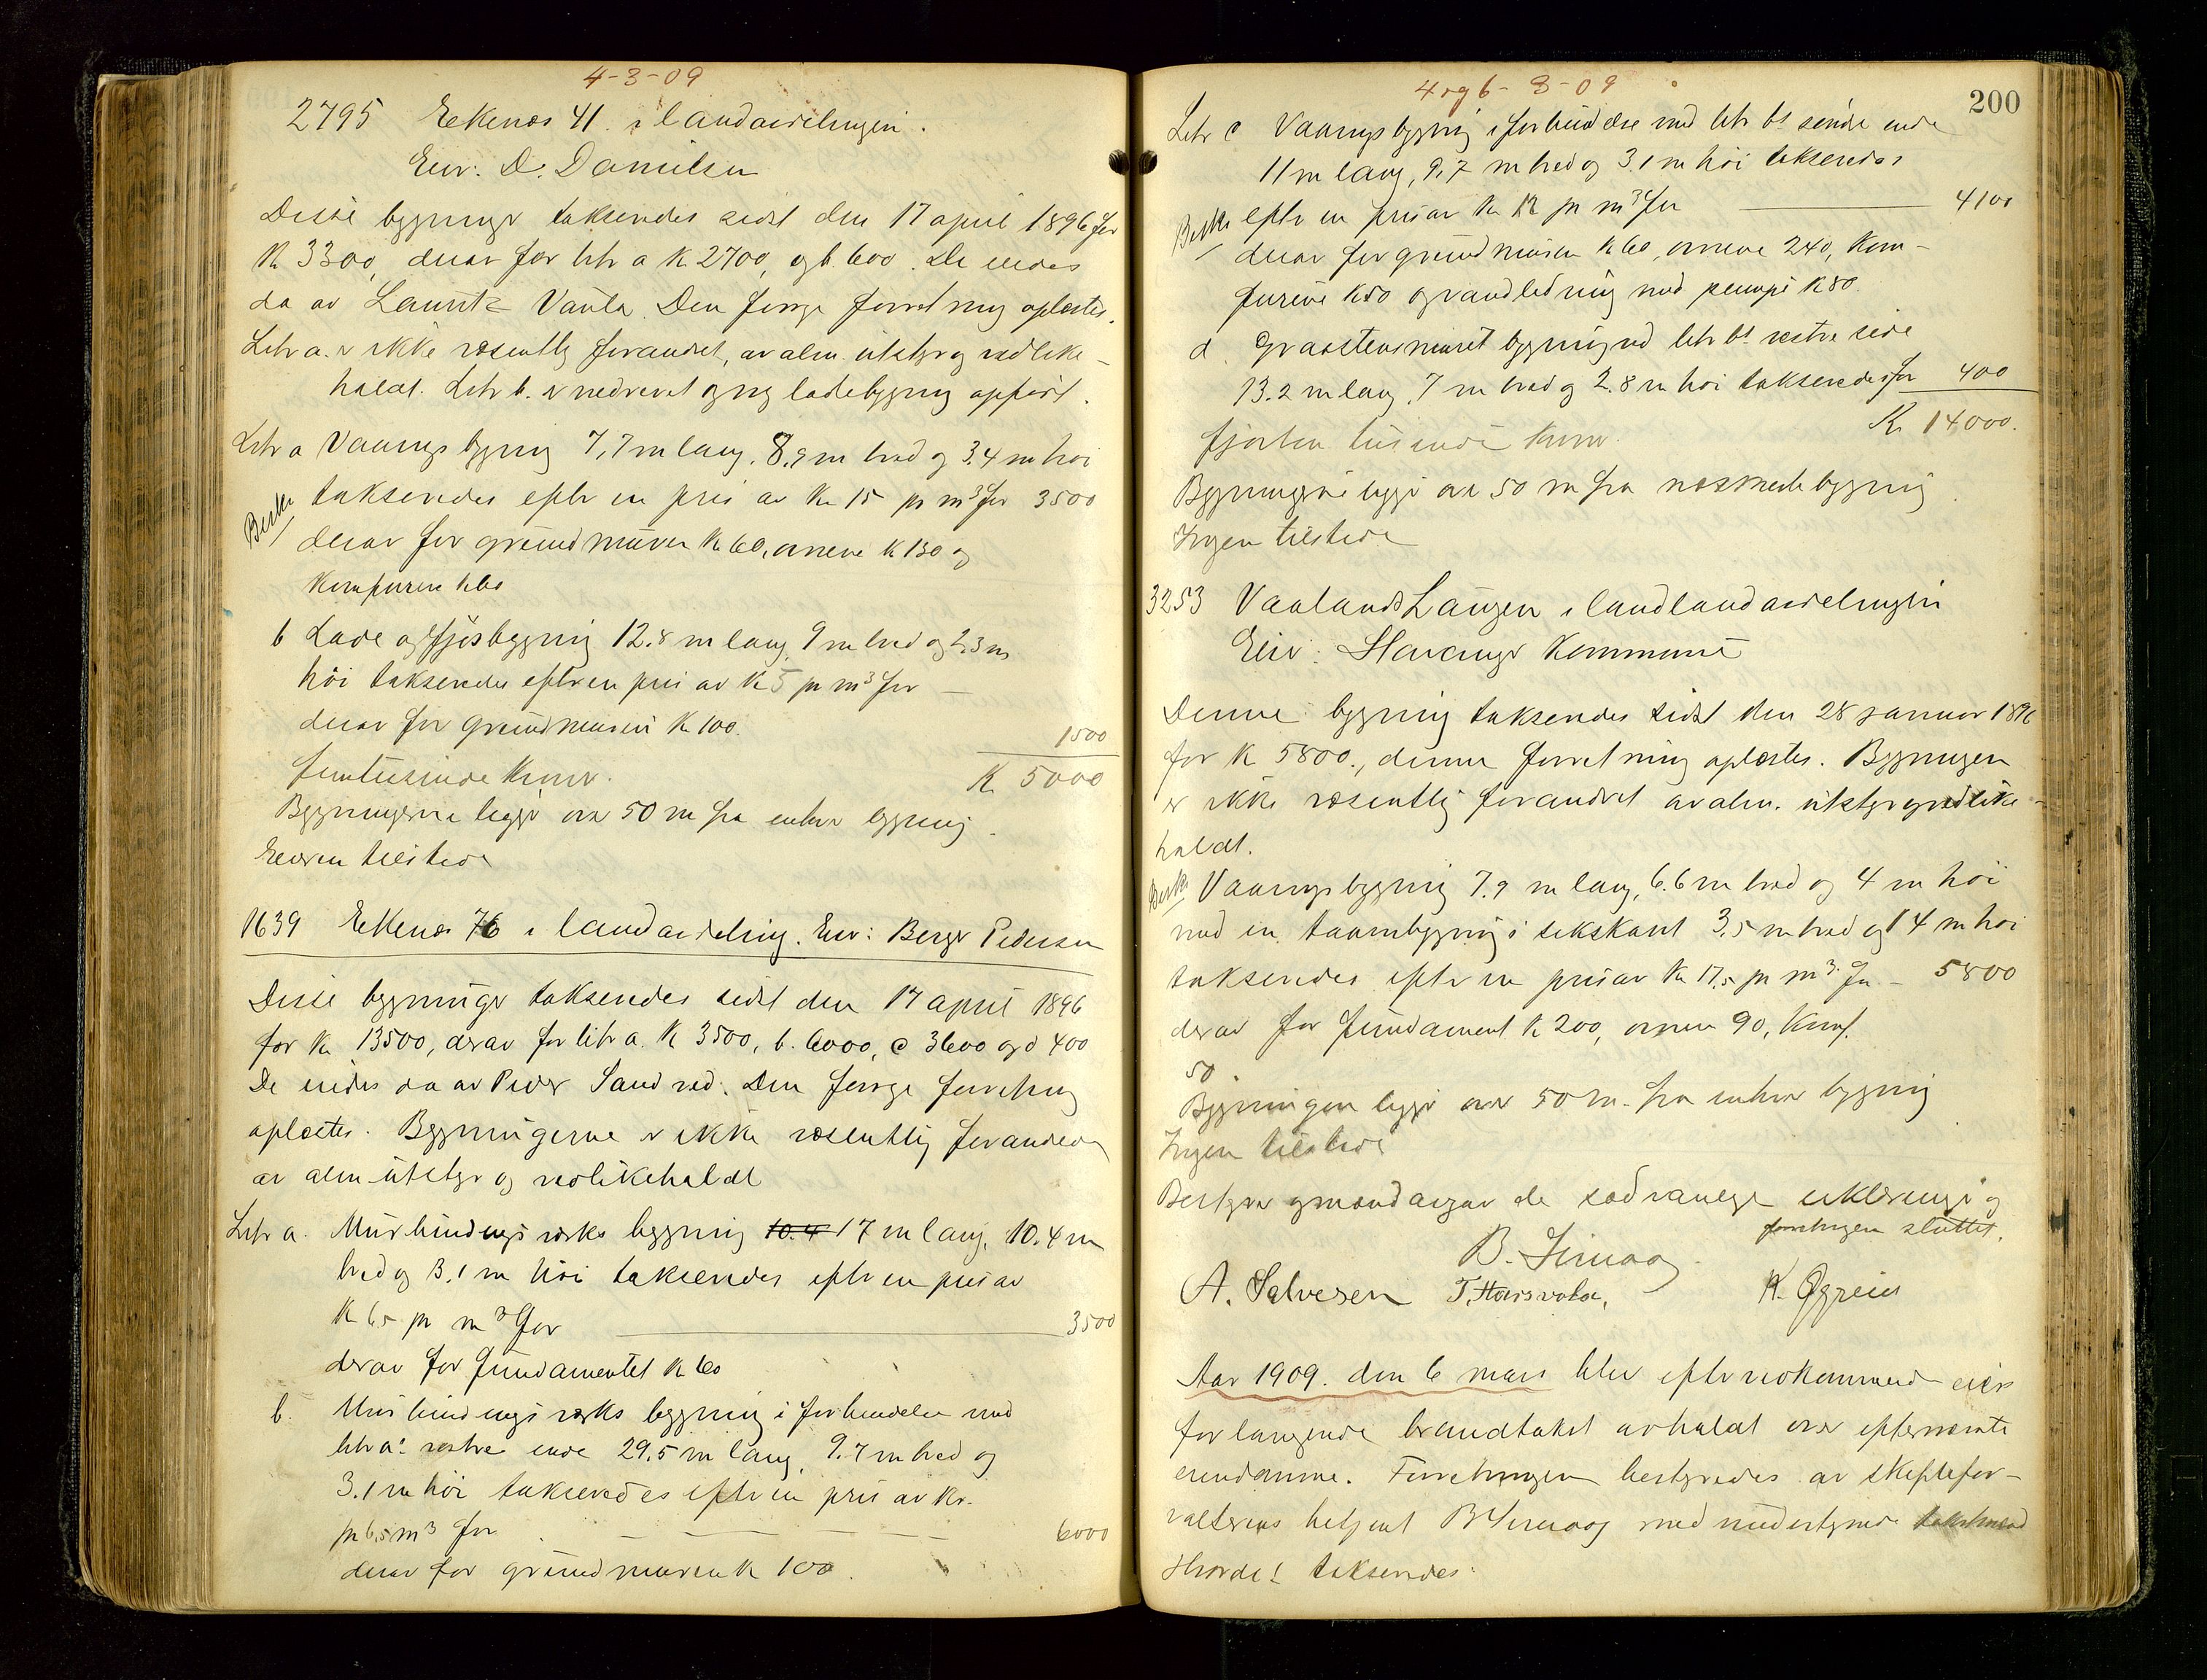 4-3-09
2795 Eekenæs 41 i landavdelingen.
Eier: D. Danielsen
Disse bygninger takseredes sidst den 17 april 1896 for
Kr 3300, derav for litr a K 2700, og b 600. De eiedes
da av Lauritz Vaula. Den forrige forretning oplæstes.
Litr a. er ikke væsentlig forandret, av alm. utstyr og vedlike-
holdt. Litr b. er nedrevet og ny ladebygning opført.
Litr a Vaaningsbygning 7,7 m lang, 8.9 m bred og 3.4 m høi
takseredes efter en pris av Kr 15 pr m³ for 3500
derav for grundmuren K 60, ovnene K 130 og
Komfuren K 60
b Lade og fjøsbygning 12.8 m lang, 9 m bred og 2,3 m
høi takseredes efter en pris av K 5 pr m³ for —
derav for grundmuren K 100.
1500
femtusinde kroner. K 5000
Bygningerne ligger over 50 m fra enhver bygning.
Eieren tilstede
1639 Eekenæs 76 i landavdeling. Eier: Berge Pedersen
Disse bygninger takseredes sidst den 17 april 1896
for Kr 13500, derav for litr a. K 3500, b. 6000, c 3600 og d 400
De eiedes da av Peder Sandved. Den forrige forretning
oplæstes. Bygningerne er ikke væsentlig forandret
av alm utstyr og vedlikeholdt
Litr a. Murbindingsverks bygning 10.4 17 m lang, 10.4 m
bred og 3.1 m høi takseredes efter en pris av
K 6,5 pr m³ for — 3500
derav for fundamentet K 60
b. Murbindingsverks bygning i forbindelse med
litr a's vestre ende 29,5 m lang, 9.7 m bred og
3.1 m høi takseredes efter en pris av Kr.
pr 6,5 m³ for — 6000
derav for grundmuren K 100.
4 og 6-3-09
200
Litr c Vaaningsbygning i forbindelse med litr b's søndre ende
11 m lang, 9,7 m bred og 3.1 m høi takseredes
efter en pris av Kr 12 pr m³ for — 4100
derav for grundmuren K 60, ovnene 240, Kom-
furene K 50 og vandledning med pumpe K 80.
d Graastensmuret bygning ved litr b's vestre side
13.2 m lang, 7 m bred og 2.8 m høi takseredes for 400
K. 14000.
fjorten tusinde kroner.
Bygningerne ligger over 50 m fra næsmeste bygning
Ingen tilstede
3253 Vaalands Haugen i landavdelingen
Eier: Stavanger Kommune
Denne bygning takseredes sidst den 28 januar 1896
for K 5800., denne forretning oplæstes. Bygningen
er ikke væsentlig forandret av alm. utstyr og vedlike-
holdt.
Vaaningsbygning 7.9 m lang, 6.6 m bred og 4 m høi
med en taarnbygning i sekskant 3,5 m bred og 14 m høi
takseredes efter en pris av Kr 17,5 pr m³ for — 5800
derav for fundament K 200, ovnen 90, Komf.
50
Bygningen ligger over 50 m. fra enhver bygning
Ingen tilstede
Bestyrer og mænd avgav de sædvanlige erklæringer og
forretningen sluttet.
A. Salvesen
Aar 1909. den 6 mars blev efter vedkommende eiers
forlangende brandtakst avholdt over efternævnte
eiendomme. Forretningen bestyredes av skiftefor-
valterens betjent med undertegnede takstmænd
Hvorda takseredes: